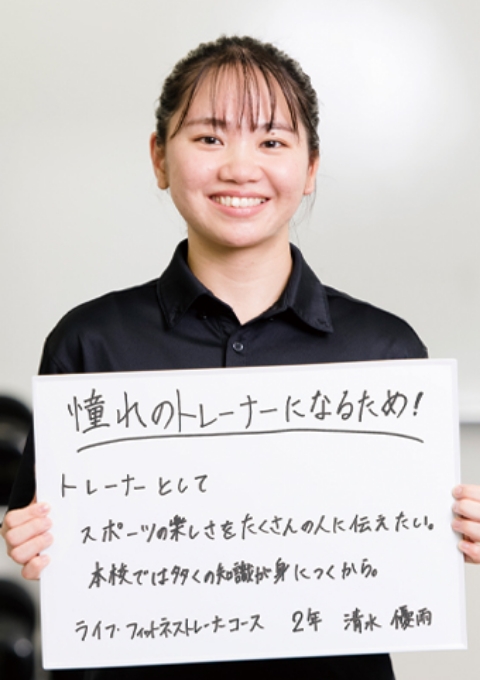 憧れのトレーナーになるため!
トレーナーとして
スポーツの楽しさをたくさんの人に伝えたい。
本校では多くの知識が身につくから。
ライフ・フィットネストレーナーコース 2年 清水 優雨